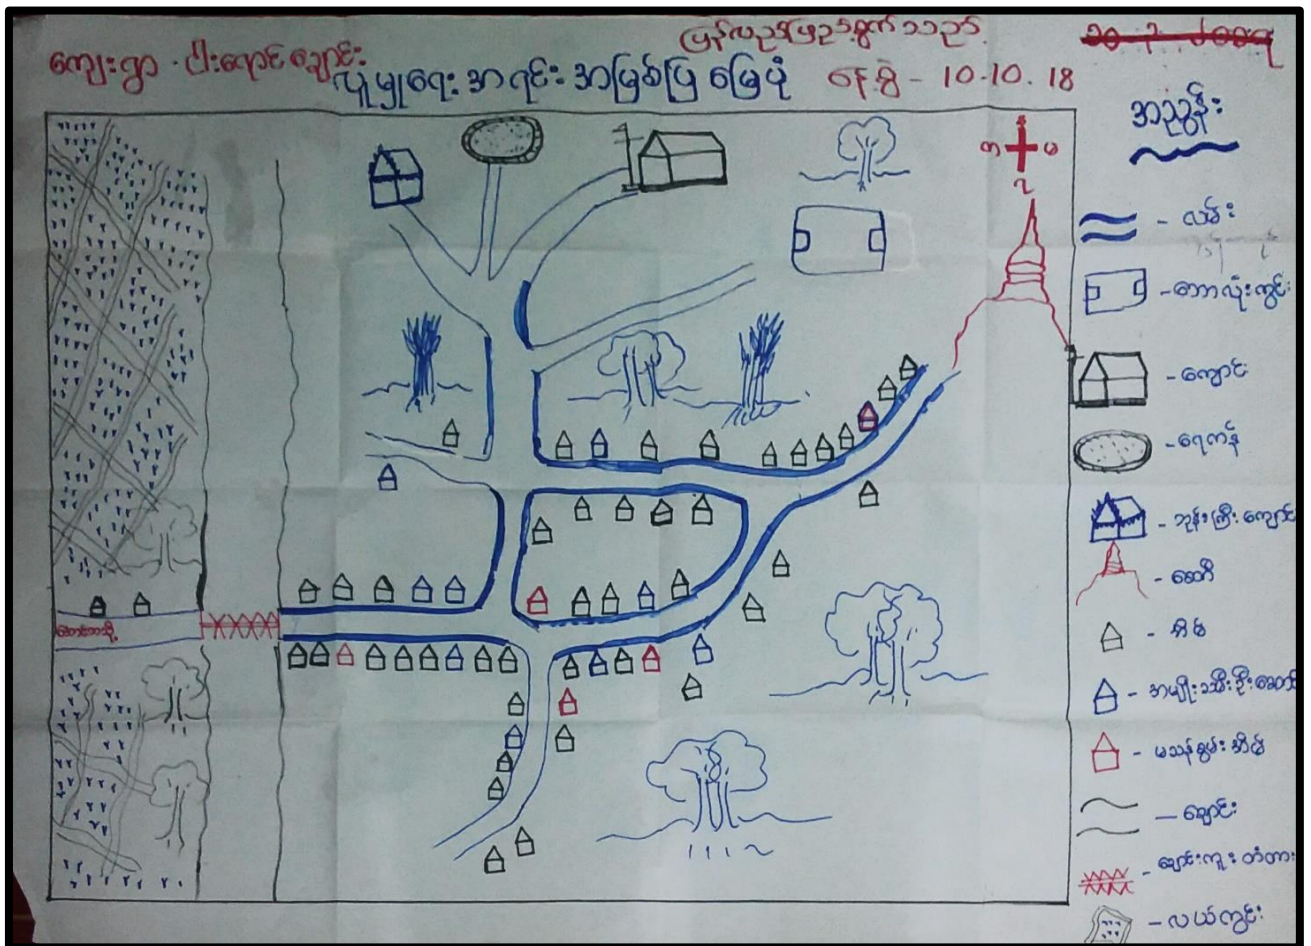 ပြန်လည်ဖြည့်စွက်သည်
ကျေးရွာ - ငါးရောင်ချောင်း
လူမှုရေး အရင်း အမြစ်ပြ မြေပုံ
နေ့စွဲ - 10.10.18
အညွှန်း
တ
မ
- လမ်း
- ဘောလုံးကွင်း
- ကျောင်း
- ရေကန်
- ဘုန်းကြီးကျောင်း
- စေတီ
- အိမ်
- အမျိုးသမီးဦးဆောင်
- မသန်စွမ်းအိမ်
- ချောင်း
- ချောင်းကူး တံတား
- လယ်ကွင်း